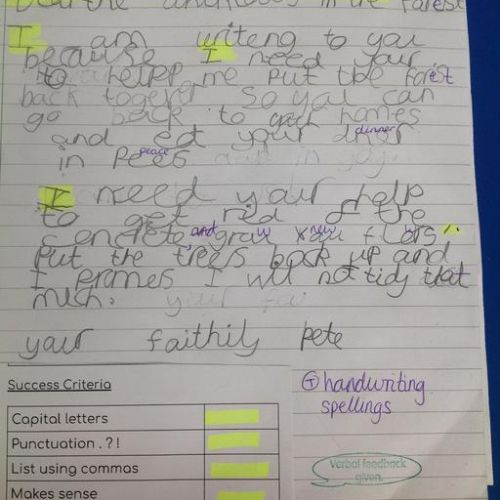 Dear the animals in the Forest
I am writeng to you
because I need your
to helpp me put the forest
back togever so you can
go back to your homes
and eat your diner dinner
in Pees peace
I need your help
to get rid of the
concrete, and grow new
Put the trees back up and
I promes I will not tidy that
much.
your faithily pete
Success Criteria
Capital letters
Punctuation . ? !
List using commas
Makes sense
T handwriting
spellings
Verbal feedback
given.